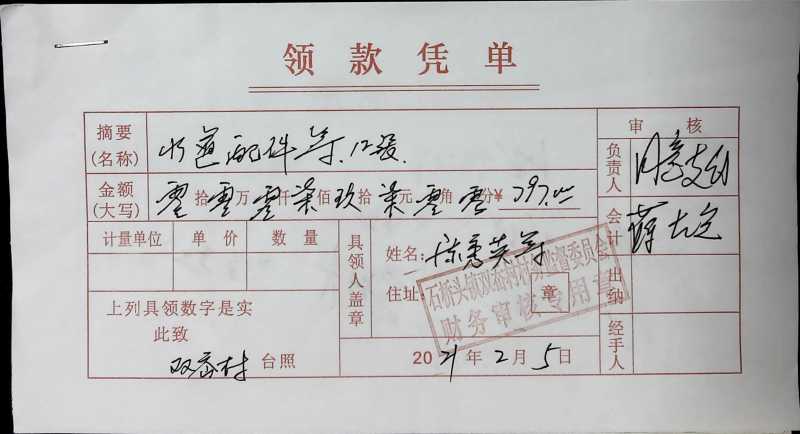 领款凭单
摘要(名称) 水道配件等.12设. 审核
金额(大写) 零拾零万零仟柒佰玖拾柒元零角零分¥ 797.00 负责人 同意支付
计量单位 单价 数量 具领人盖章 姓名: 陈秀英等 会计
住址: 章 出纳
石桥头镇双岙村村务监督委员会
财务审核专用章
上列具领数字是实
此致
双岙村 台照 2021年2月5日 经手人